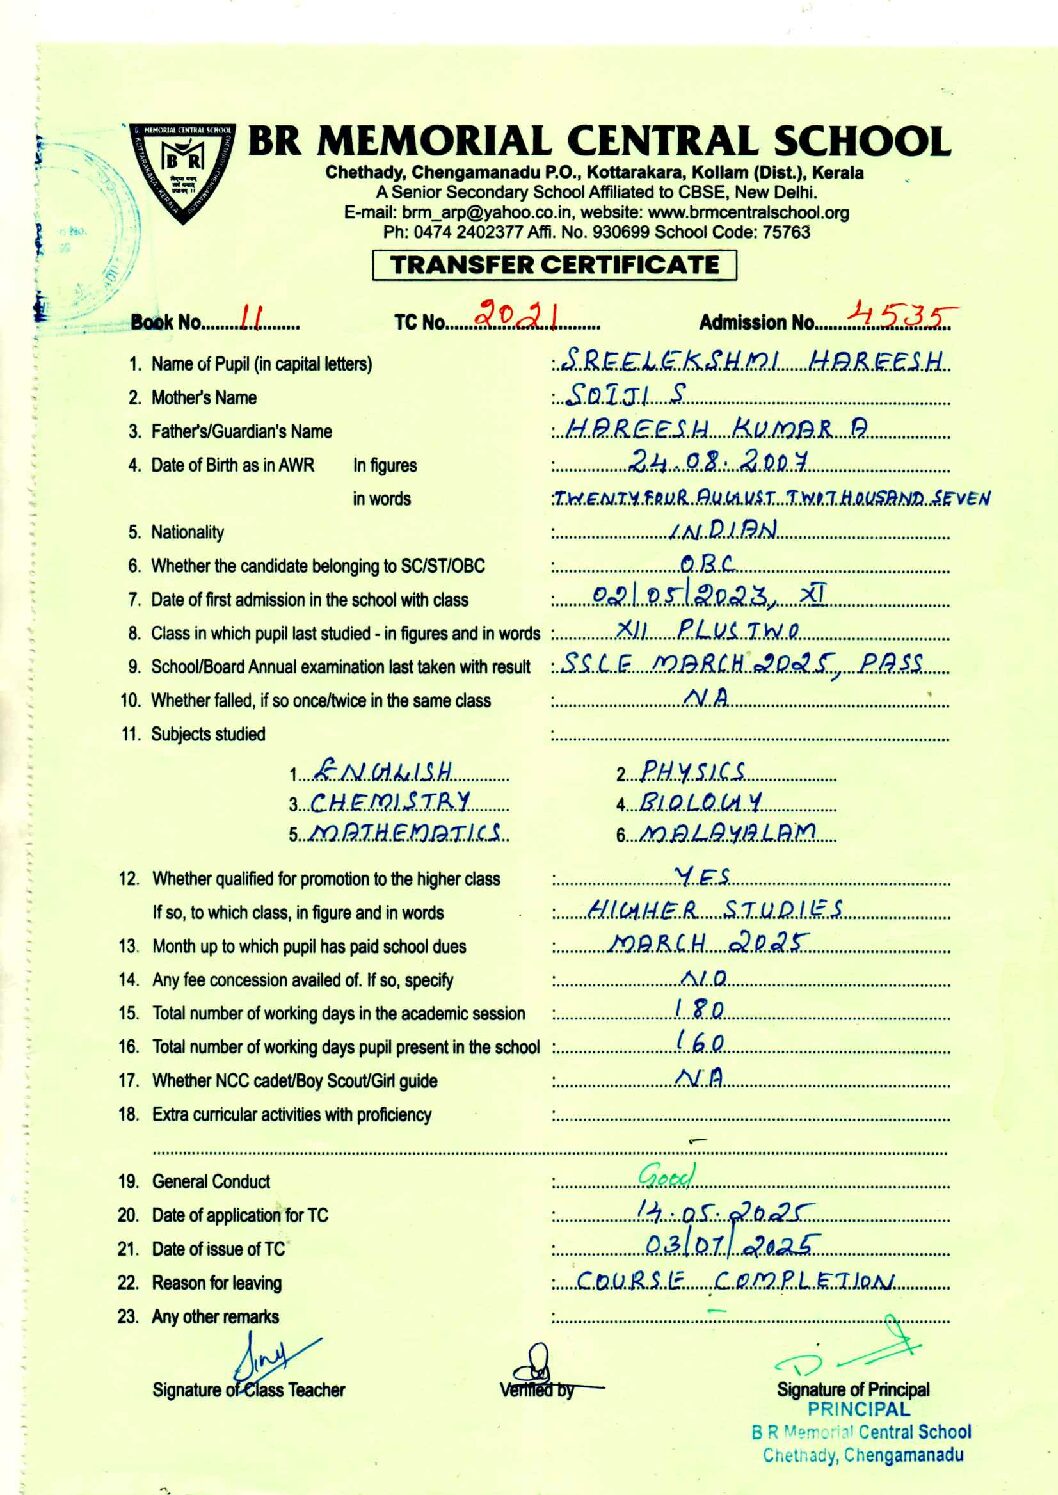 BR MEMORIAL CENTRAL SCHOOL
Chethady, Chengamanadu P.O., Kottarakara, Kollam (Dist.), Kerala
A Senior Secondary School Affiliated to CBSE, New Delhi.
E-mail: brm_arp@yahoo.co.in, website: www.brmcentralschool.org
Ph: 0474 2402377 Affi. No. 930699 School Code: 75763
TRANSFER CERTIFICATE
Book No. 11 TC No. 2021 Admission No. 4535
1. Name of Pupil (in capital letters) : SREELEKSHMI HAREESH
2. Mother's Name : SOIJI S
3. Father's/Guardian's Name : HAREESH KUMAR A
4. Date of Birth as in AWR In figures : 24.08.2007
in words : TWENTY FOUR AUGUST TWO THOUSAND SEVEN
5. Nationality : INDIAN
6. Whether the candidate belonging to SC/ST/OBC : OBC
7. Date of first admission in the school with class : 02/05/2023, XI
8. Class in which pupil last studied - in figures and in words : XII PLUS TWO
9. School/Board Annual examination last taken with result : SSCE MARCH 2025, PASS
10. Whether falled, if so once/twice in the same class : NA
11. Subjects studied :
1. ENGLISH 2. PHYSICS
3. CHEMISTRY 4. BIOLOGY
5. MATHEMATICS 6. MALAYALAM
12. Whether qualified for promotion to the higher class : YES
If so, to which class, in figure and in words : HIGHER STUDIES
13. Month up to which pupil has paid school dues : MARCH 2025
14. Any fee concession availed of. If so, specify : NO
15. Total number of working days in the academic session : 180
16. Total number of working days pupil present in the school : 160
17. Whether NCC cadet/Boy Scout/Girl guide : NA
18. Extra curricular activities with proficiency :
19. General Conduct : Good
20. Date of application for TC : 14.05.2025
21. Date of issue of TC : 03/07/2025
22. Reason for leaving : COURSE COMPLETION
23. Any other remarks : –
Signature of Class Teacher Verified by Signature of Principal
PRINCIPAL
B R Memorial Central School
Chethady, Chengamanadu